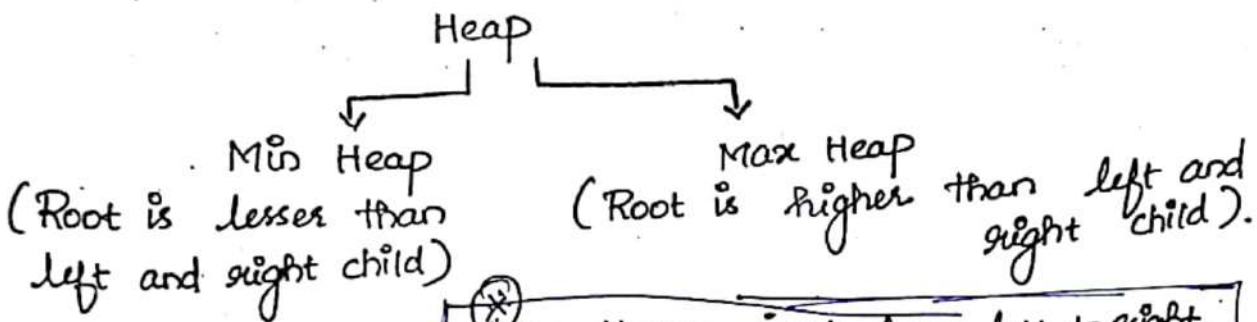 Heap
Min Heap
(Root is lesser than
left and right child)
Max Heap
(Root is higher than left and
right child).
left to right